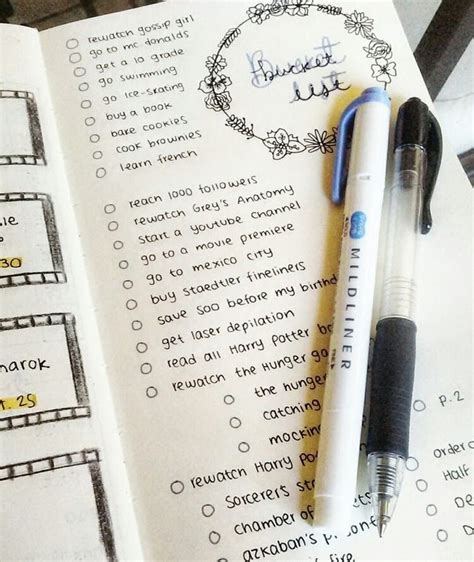 Bucket
list
rewatch gossip girl
go to mc donalds
get a 10 grade
go swimming
go ice-skating
buy a book
bake cookies
cook brownies
learn french
reach 1000 followers
rewatch Grey's Anatomy
start a youtube channel
go to a movie premiere
go to mexico city
buy staedtler fineliners
save 500 before my birthd
get laser depilation
read all Harry Potter bo
rewatch the Hunger ga
the hunge
catching
mockin
rewatch Harry Po
sorcerer's st
chamber of ets
azkaban's p
fire
p.2
order o
Half
MILDLINER
30
narok
t. 25